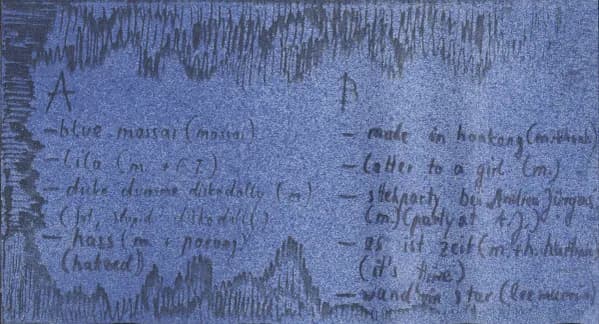 A
- blue massai (massai)
- lila (m. +
- dicke dumme diskodolly (m)
(fat, stupid diskodolly)
- hass (m + porong)
(hatred)
B
- made in honkong (m.
- letter to a girl (m.)
- party bei Andrea Jürgens
(m) (party at
- es ist zeit (m. + h.
(it's time)
- wand'rin star (lee marvin)